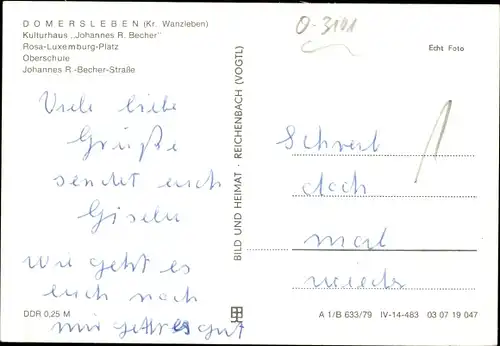 DOMERSLEBEN (Kr. Wanzleben)
Kulturhaus „Johannes R. Becher"
Rosa-Luxemburg-Platz
Oberschule
Johannes R.-Becher-Straße
O-3141
Echt Foto
Viele liebe
Grüße
sendet euch
Gisela
Wie geht es
euch noch
mir geht es gut
BILD UND HEIMAT · REICHENBACH (VOGTL)
Schreit
doch
mal
wieder
DDR 0,25 M
A 1/B 633/79 IV-14-483 03 07 19 047